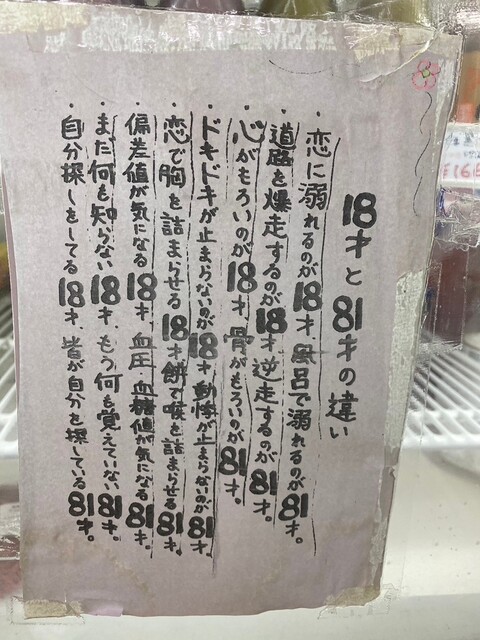 18才と81才の違い
・恋に溺れるのが18才、風呂で溺れるのが81才。
・道路を爆走するのが18才逆走するのが81才。
・心がもろいのが18才骨がもろいのが81才。
・ドキドキが止まらないのが18才動悸が止まらないのが81才。
・恋で胸を詰まらせる18才餅で喉を詰まらせる81才。
・偏差値が気になる18才、血圧、血糖値が気になる81才。
・まだ何も知らない18才、もう何も覚えていない、81才。
・自分探しをしてる18才、皆が自分を探している81才。